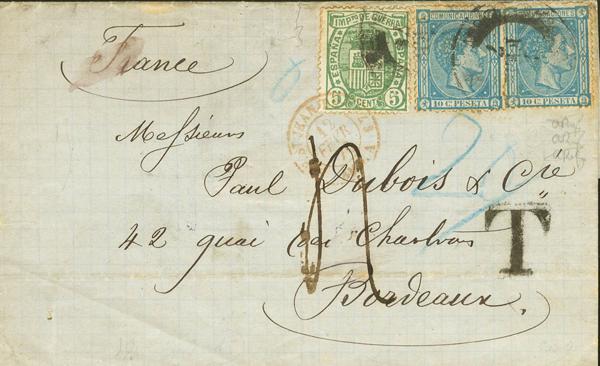 IMPTO DE GUERRA
ESPAÑA
ESPAÑA
5 CENT 5
COMUNICACIONES
10 C. PESETA
COMUNICACIONES
10 C. PESETA
France
Messieurs
Paul Dubois & Cie
42 quai des Chartrons
T
Bordeaux.